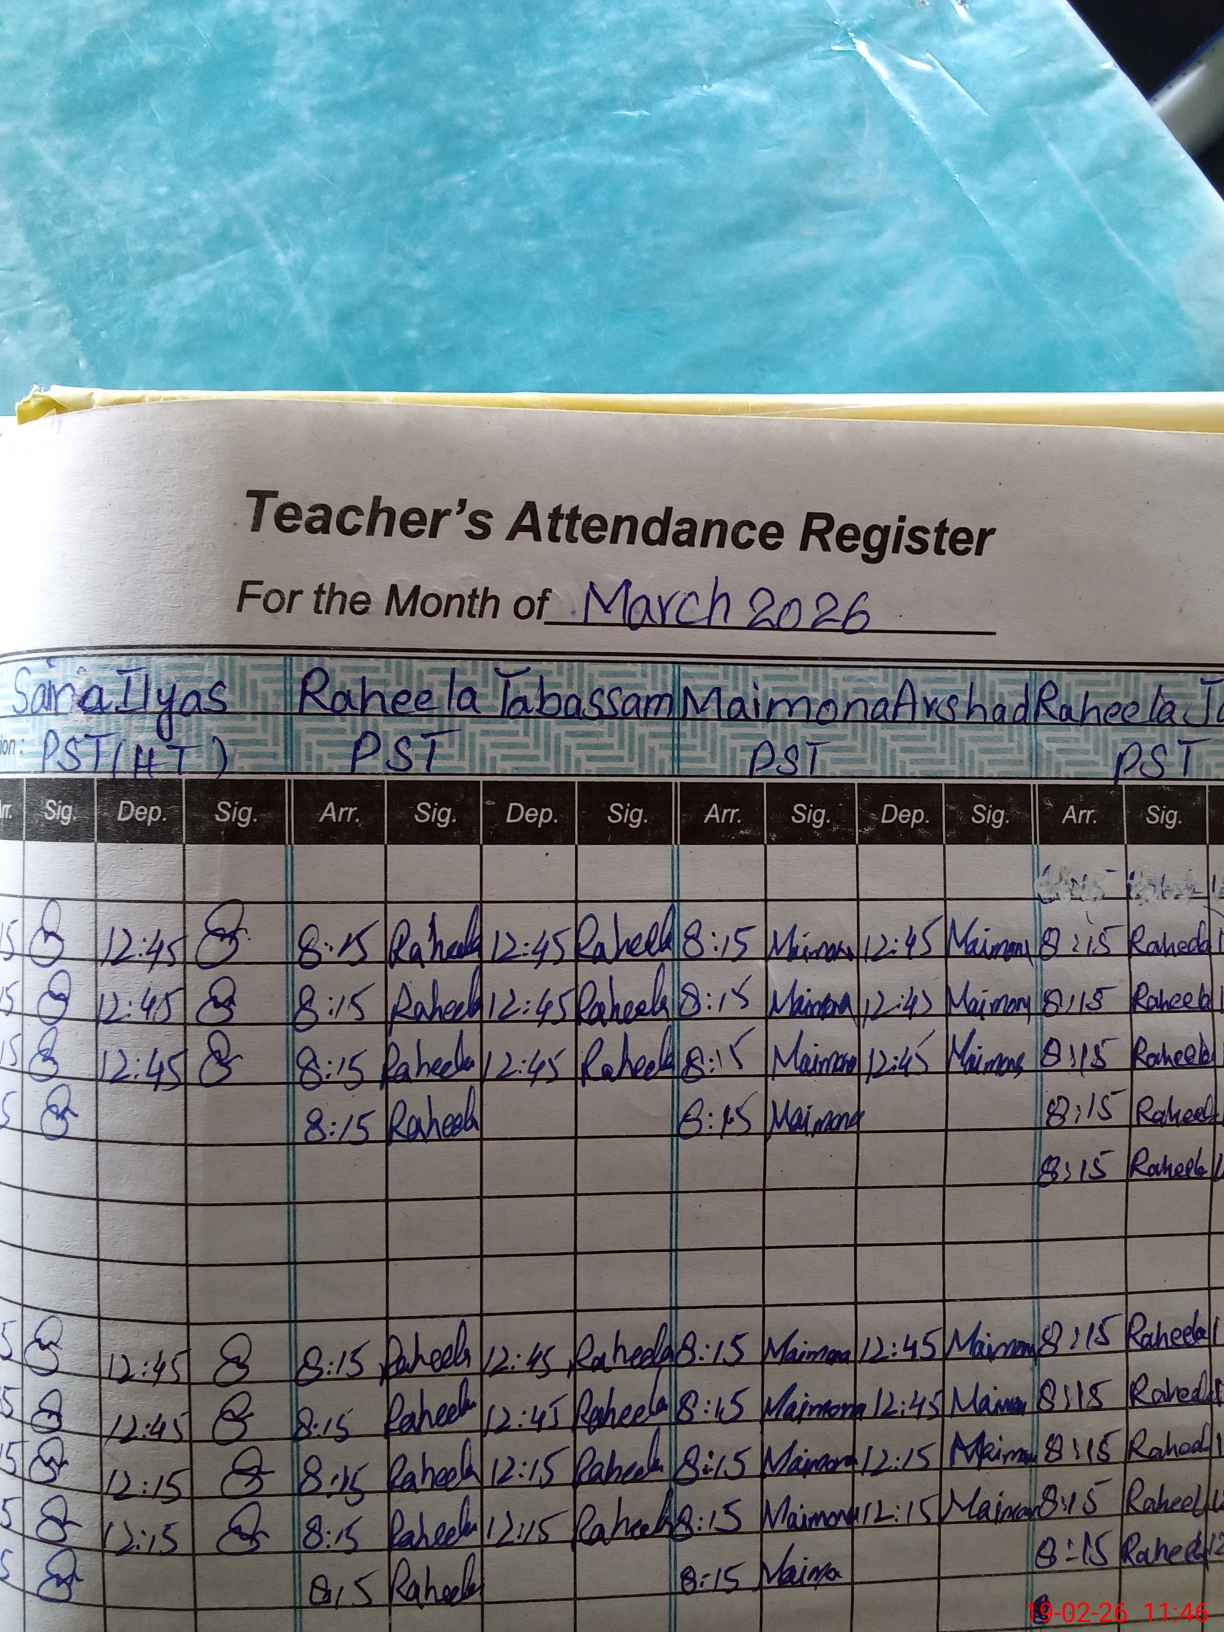 Teacher's Attendance Register
For the Month of March 2026
Saira Ilyas Raheela Tabassam Maimona Arshad Raheela
ion: PST(HT) PST PST PST
rr. Sig. Dep. Sig. Arr. Sig. Dep. Sig. Arr. Sig. Dep. Sig. Arr. Sig.
5 12:45 8:15 Raheela 12:45 Raheela 8:15 Maimona 12:45 Maimona 8:15 Raheela
5 12:45 8:15 Raheela 12:45 Raheela 8:15 Maimona 12:45 Maimona 8:15 Raheela
15 12:45 8:15 Raheela 12:45 Raheela 8:15 Maimona 12:45 Maimona 8:15 Raheela
5 8:15 Raheela 8:15 Maimona 8:15 Raheela
8:15 Raheela
5 12:45 8:15 Raheela 12:45 Raheela 8:15 Maimona 12:45 Maimona 8:15 Raheela
5 12:45 8:15 Raheela 12:45 Raheela 8:15 Maimona 12:45 Maimon 8:15 Raheel
15 12:15 8:15 Raheela 12:15 Raheela 8:15 Maimona 12:15 Maimon 8:15 Raheel
5 12:15 8:15 Raheela 12:15 Raheela 8:15 Maimona 12:15 Maimon 8:15 Raheel
5 8:15 Raheela 8:15 Maimo 8:15 Raheel 12
19-02-26 11:46